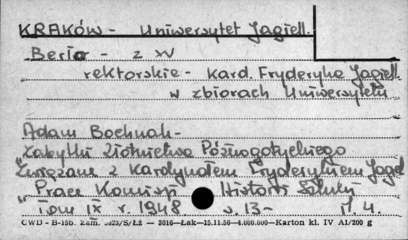 KRAKÓW - Uniwersytet Jagiell.
Berło - z XV
rektorskie - Kard. Fryderyka Jagiell.
w zbiorach Uniwersytetu
Adam Bochnak -
Zabytki złotnictwa Późnogotyckiego
Związane z Kardynałem Fryderykiem Jagiel
"Prace Komisji Historii Sztuki
tom IX r. 1948 s. 13-
CWD - B-15b. Zam. S/Łż — 3016—Łak—15.11.56—4.000.000—Karton kl. IV A1/200 g